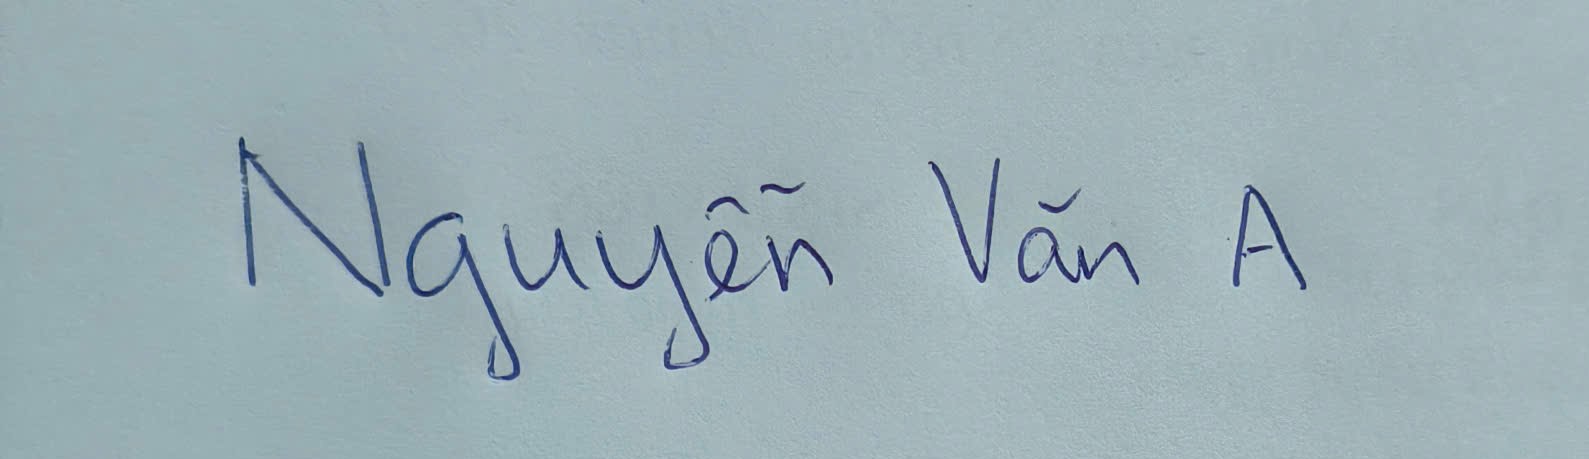 Nguyễn Văn A